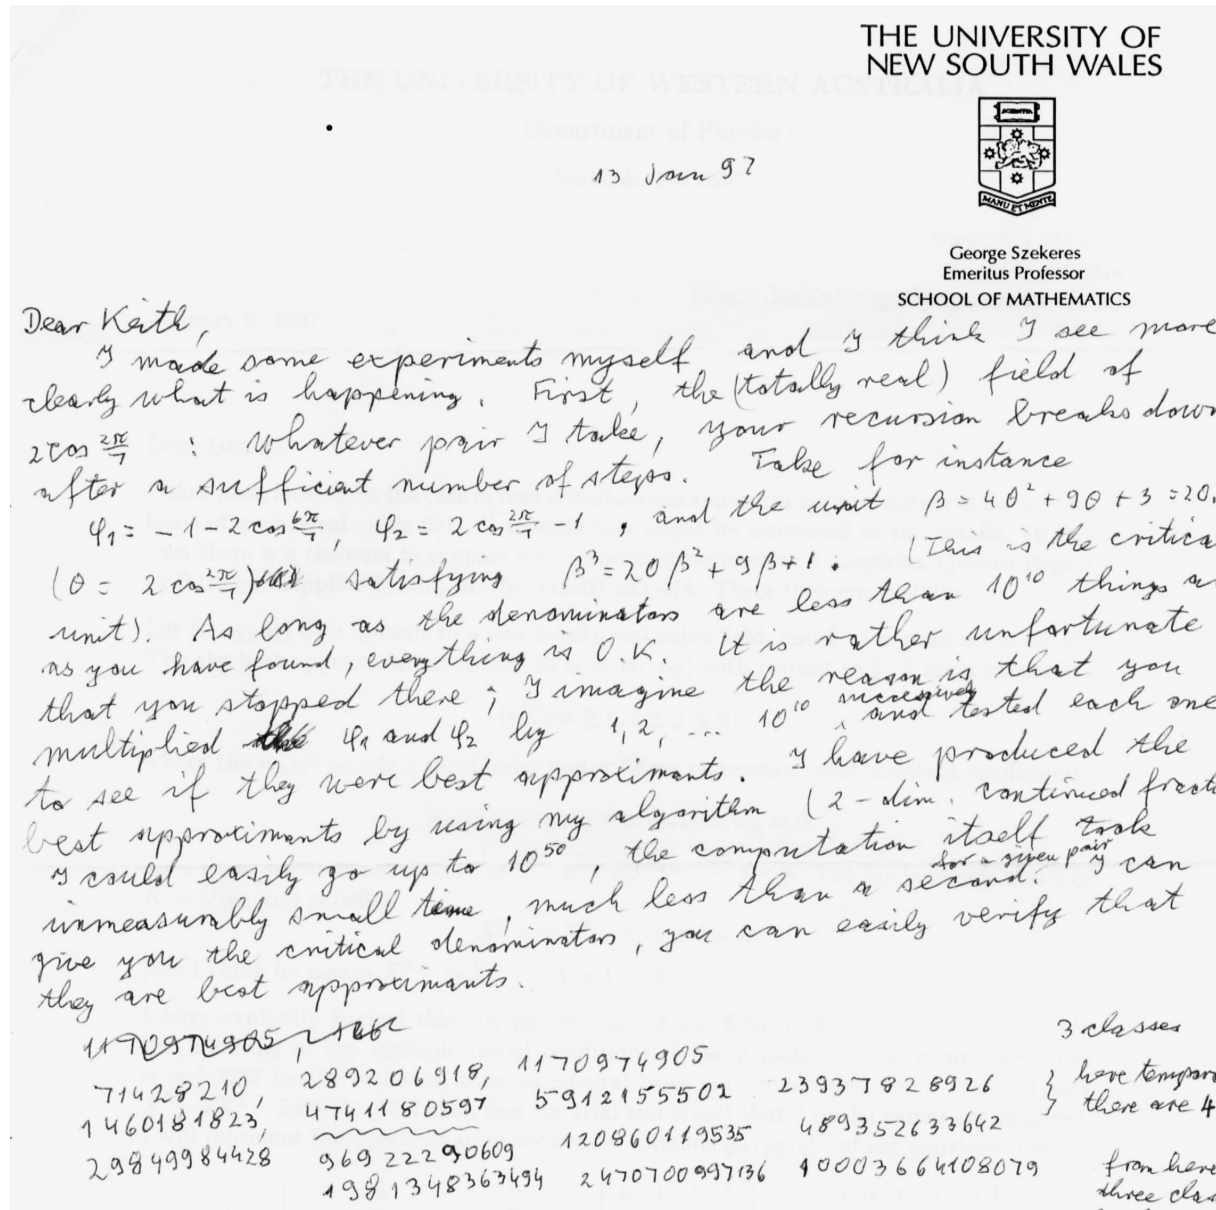 THE UNIVERSITY OF
NEW SOUTH WALES
SCIENTIA
MANU ET MENTE
13 Jan 97
George Szekeres
Emeritus Professor
SCHOOL OF MATHEMATICS
Dear Keith,
I made some experiments myself and I think I see more
clearly what is happening. First, the (totally real) field of
2cos 2π/7 : whatever pair I take, your recursion breaks down
after a sufficient number of steps. Take for instance
φ₁ = -1 - 2 cos 6π/7, φ₂ = 2 cos 2π/7 - 1, and the unit β = 4θ² + 9θ + 3 = 20.
(θ = 2 cos 2π/7) satisfying β³ = 20β² + 9β + 1. (This is the critica
unit). As long as the denominators are less than 10¹⁰ things a
as you have found, everything is O.K. It is rather unfortunate
that you stopped there; I imagine the reason is that you
multiplied φ₁ and φ₂ by 1, 2, ... 10¹⁰ successively, and tested each one
to see if they were best approximants. I have produced the
best approximants by using my algorithm (2-dim. continued fract
I could easily go up to 10⁵⁰, the computation itself took
unmeasurably small time, much less than a second. for a given pair I can
give you the critical denominators, you can easily verify that
they are best approximants.
71428210, 289206918, 1170974905 3 classes
1460181823, 4741180597 5912155502 23937828926 } here tempora
29849984428 96922290609 120860119535 489352633642 there are 4
1981348363494 2470700997136 10003664108079 from here
three clas